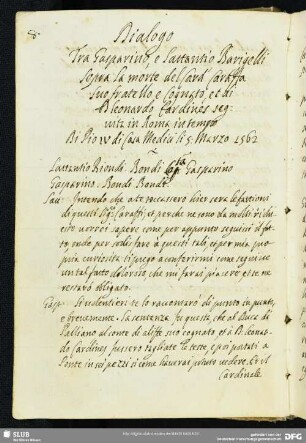 8.
Dialogo
Tra Gasparino, e Lattantio Barigelli
sopra la morte del Card. Caraffa
suo fratello e cognato, et di
D. Leonardo Cardines seg
uita in Roma in tempo
Di Pio IV di Casa Medici li 5. Marzo 1562
Lattantio Bondi Gasparino
Gasparino. Bondi
Intendo che à te toccasero hier sera le fationi
di questi Caraffi, et perche ne sono da molti ri
cerco verrei sapere come per appunto seguisse il fat
to, onde per sodisfare à questi tali, et per mia
pria curiosità ti prego a conferirmi come seguisse
un tal fatto doloroso, che mi farai piacere, et te ne
restarò obligato.
Gasp. te lo raccontarò di punto in punto,
e brevemente. La sentenza fu questa, che al Duca di
Palliano, al conte di Aliffe suo cognato, et à D. Leonar
do Cardines fussero tagliate le teste, e poi portati a
Ponte in pezzi, si come haverai potuto vedere. Et il
Cardinale
SLUB
DFG